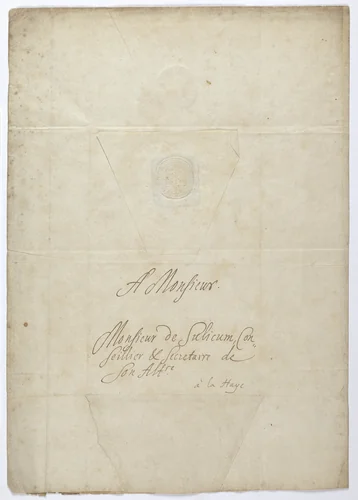 A Monsieur.
Monsieur de Sulicum, Con
seillier & Secretaire de
Son Alt.ce
à la Haye